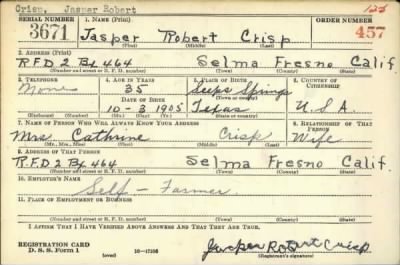 Crisp, Jasper Robert
SERIAL NUMBER 1. NAME (Print) ORDER NUMBER
3671 Jasper Robert Crisp 457
(First) (Middle) (Last)
2. ADDRESS (Print)
R.F.D 2 Bx 464 Selma Fresno Calif
(Number and street or R. F. D. number) (Town) (County) (State)
3. TELEPHONE 4. AGE IN YEARS 5. PLACE OF BIRTH 6. COUNTRY OF CITIZENSHIP
None 35 Springs
(Town or county)
DATE OF BIRTH
10-3 1905 Texas U.S.A
(Exchange) (Number) (Mo.) (Day) (Yr.) (State or country)
7. NAME OF PERSON WHO WILL ALWAYS KNOW YOUR ADDRESS 8. RELATIONSHIP OF THAT PERSON
Mrs. Cathrine Crisp Wife
(Mr., Mrs., Miss) (First) (Middle) (Last)
9. ADDRESS OF THAT PERSON
R.F.D. 2 Bx 464 Selma Fresno Calif.
(Number and street or R. F. D. number) (Town) (County) (State)
10. EMPLOYER'S NAME
Self - Farmer
11. PLACE OF EMPLOYMENT OR BUSINESS
(Number and street or R. F. D. number) (Town) (County) (State)
I AFFIRM THAT I HAVE VERIFIED ABOVE ANSWERS AND THAT THEY ARE TRUE.
REGISTRATION CARD
D. S. S. Form 1 (over) 16-17105 Jasper Robert Crisp
(Registrant's signature)